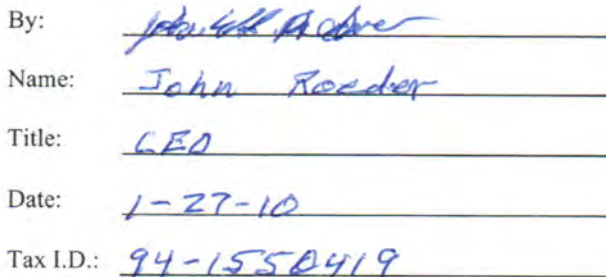 By:
Name: John Roeder
Title: CEO
Date: 1-27-10
Tax I.D.: 94-1550419